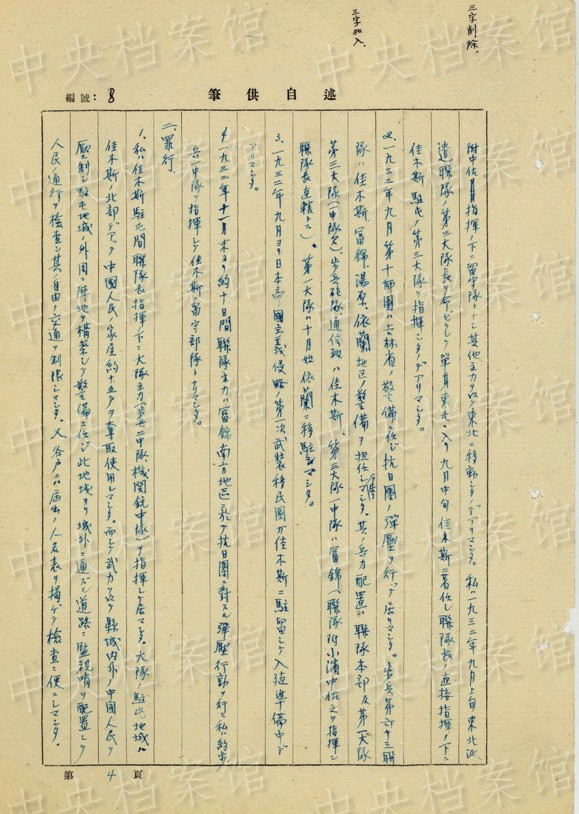 三字削除、
三字加入、
述自供筆
編號：8
附中佐ノ指揮ノ下ニ留守隊トナシ其他主力ヲ以テ東北ニ移動シタノデアリマシタ。私ハ一九三二年九月上旬東北派
遣聯隊ノ第三大隊長ヲ命ゼラレ單身東北ニ入リ九月中旬佳木斯ニ著任シ聯隊長ノ直接指揮ノ下ニ
佳木斯駐屯ノ第三大隊ヲ指揮シタノデアリマス。
2、一九三二年九月第十師團ハ吉林省ノ警備ニ任ジ抗日團ノ彈壓ヲ行ッテ居リマシタ。步兵第六十三聯
隊ハ佳木斯、富錦、湯原、依蘭地區ノ警備ヲ担任シマシタ。其ノ兵力配置ハ聯隊本部及第一大隊
第三大隊（一中隊欠）、步兵砲隊通信班ハ佳木斯、第三大隊ノ一中隊ハ富錦（聯隊附小濱中佐之ヲ指揮シ
聯隊長直轄ス）。第一大隊ハ十月始依蘭ニ移駐シマシタ。
3、一九三二年九月ヨリ日本帝國主義侵略ノ第一次武裝移民團ガ佳木斯ニ駐留シテ入植準備中デ
アリマシタ。
4、一九三二年十一月末ヨリ約十日間聯隊主力ハ富錦南方地區ニ於テ抗日團ニ對スル彈壓行動ヲ行ヒ私ハ約步
兵一中隊ヲ指揮シテ佳木斯ノ留守部隊トナリマシタ。
二、罪行。
1、私ハ佳木斯駐屯間聯隊長ノ指揮ノ下ニ大隊主力（第二中隊機関銃中隊）ヲ指揮シテ居マシタ。大隊ノ駐屯地域ハ
佳木斯ノ北部デアッテ中國人民ノ家屋約十五戸ヲ奪取使用シマシタ。而シテ武力ヲ以テ縣城内外ノ中國人民ヲ
壓制シ駐屯地域ノ外周ニ陣地ヲ構築シテ警備ニ任ジ此地域ヨリ城外ニ通ズル道路ニ監視哨ヲ配置シテ
人民ノ通行ヲ檢査シ其ノ自由ノ交通ヲ制限シマシタ。又各戸ニハ屆出ノ人名表ヲ揭ゲテ檢査ニ便ニシマシタ。
第4頁
中央档案馆